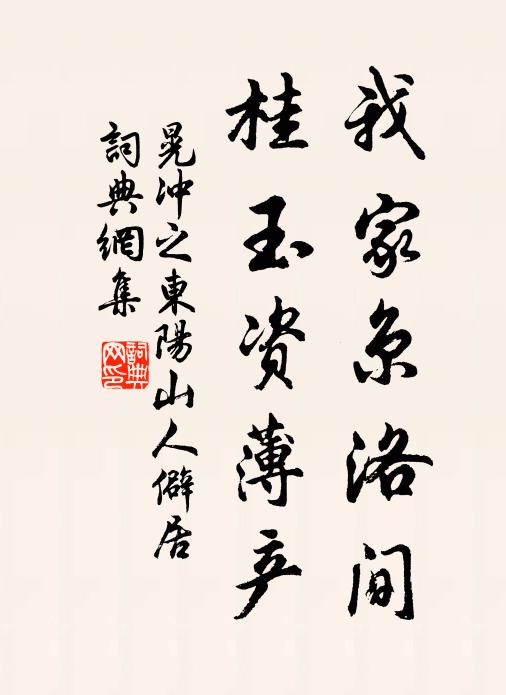 我家京洛间
桂玉资薄产
晃冲之東陽山人僻居
詞典網集
詞典网印